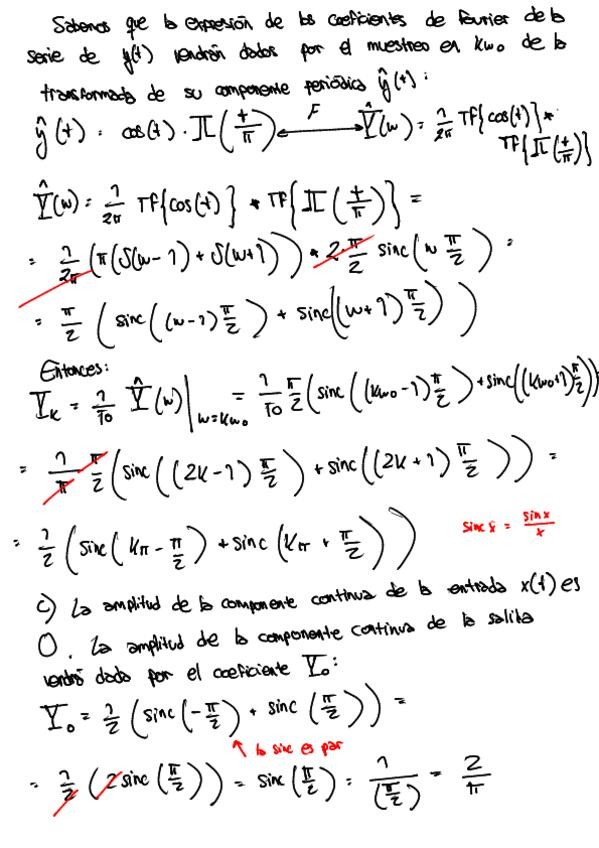 Sabemos que la expresión de los coeficientes de Fourier de la
serie de y(t) vendrán dados por el muestreo en kω₀ de la
transformada de su componente periódica ŷ(t):
ŷ(t) = cos(t) · Π(t/π) ⟷ F Ŷ(ω) = 1/2π TF{cos(t)} *
TF{Π(t/π)}
Ŷ(ω) = 1/2π TF{cos(t)} * TF{Π(t/π)} =
= 1/2π (π(δ(ω-1) + δ(ω+1))) * 2·π/2 sinc(ω π/2) =
= π/2 (sinc((ω-1)π/2) + sinc((ω+1)π/2))
Entonces:
Y_k = 1/T₀ Ŷ(ω)|ω=kω₀ = 1/T₀ π/2 (sinc((kω₀-1)π/2) + sinc((kω₀+1)π/2))
= 1/π π/2 (sinc((2k-1)π/2) + sinc((2k+1)π/2)) =
= 1/2 (sinc(kπ - π/2) + sinc(kπ + π/2))
sinc x = sin x/x
c) La amplitud de la componente continua de la entrada x(t) es
0. La amplitud de la componente continua de la salida
vendrá dada por el coeficiente Y₀:
Y₀ = 1/2 (sinc(-π/2) + sinc(π/2)) =
↑ la sinc es par
= 1/2 (2 sinc(π/2)) = sinc(π/2) = 1/(π/2) = 2/π